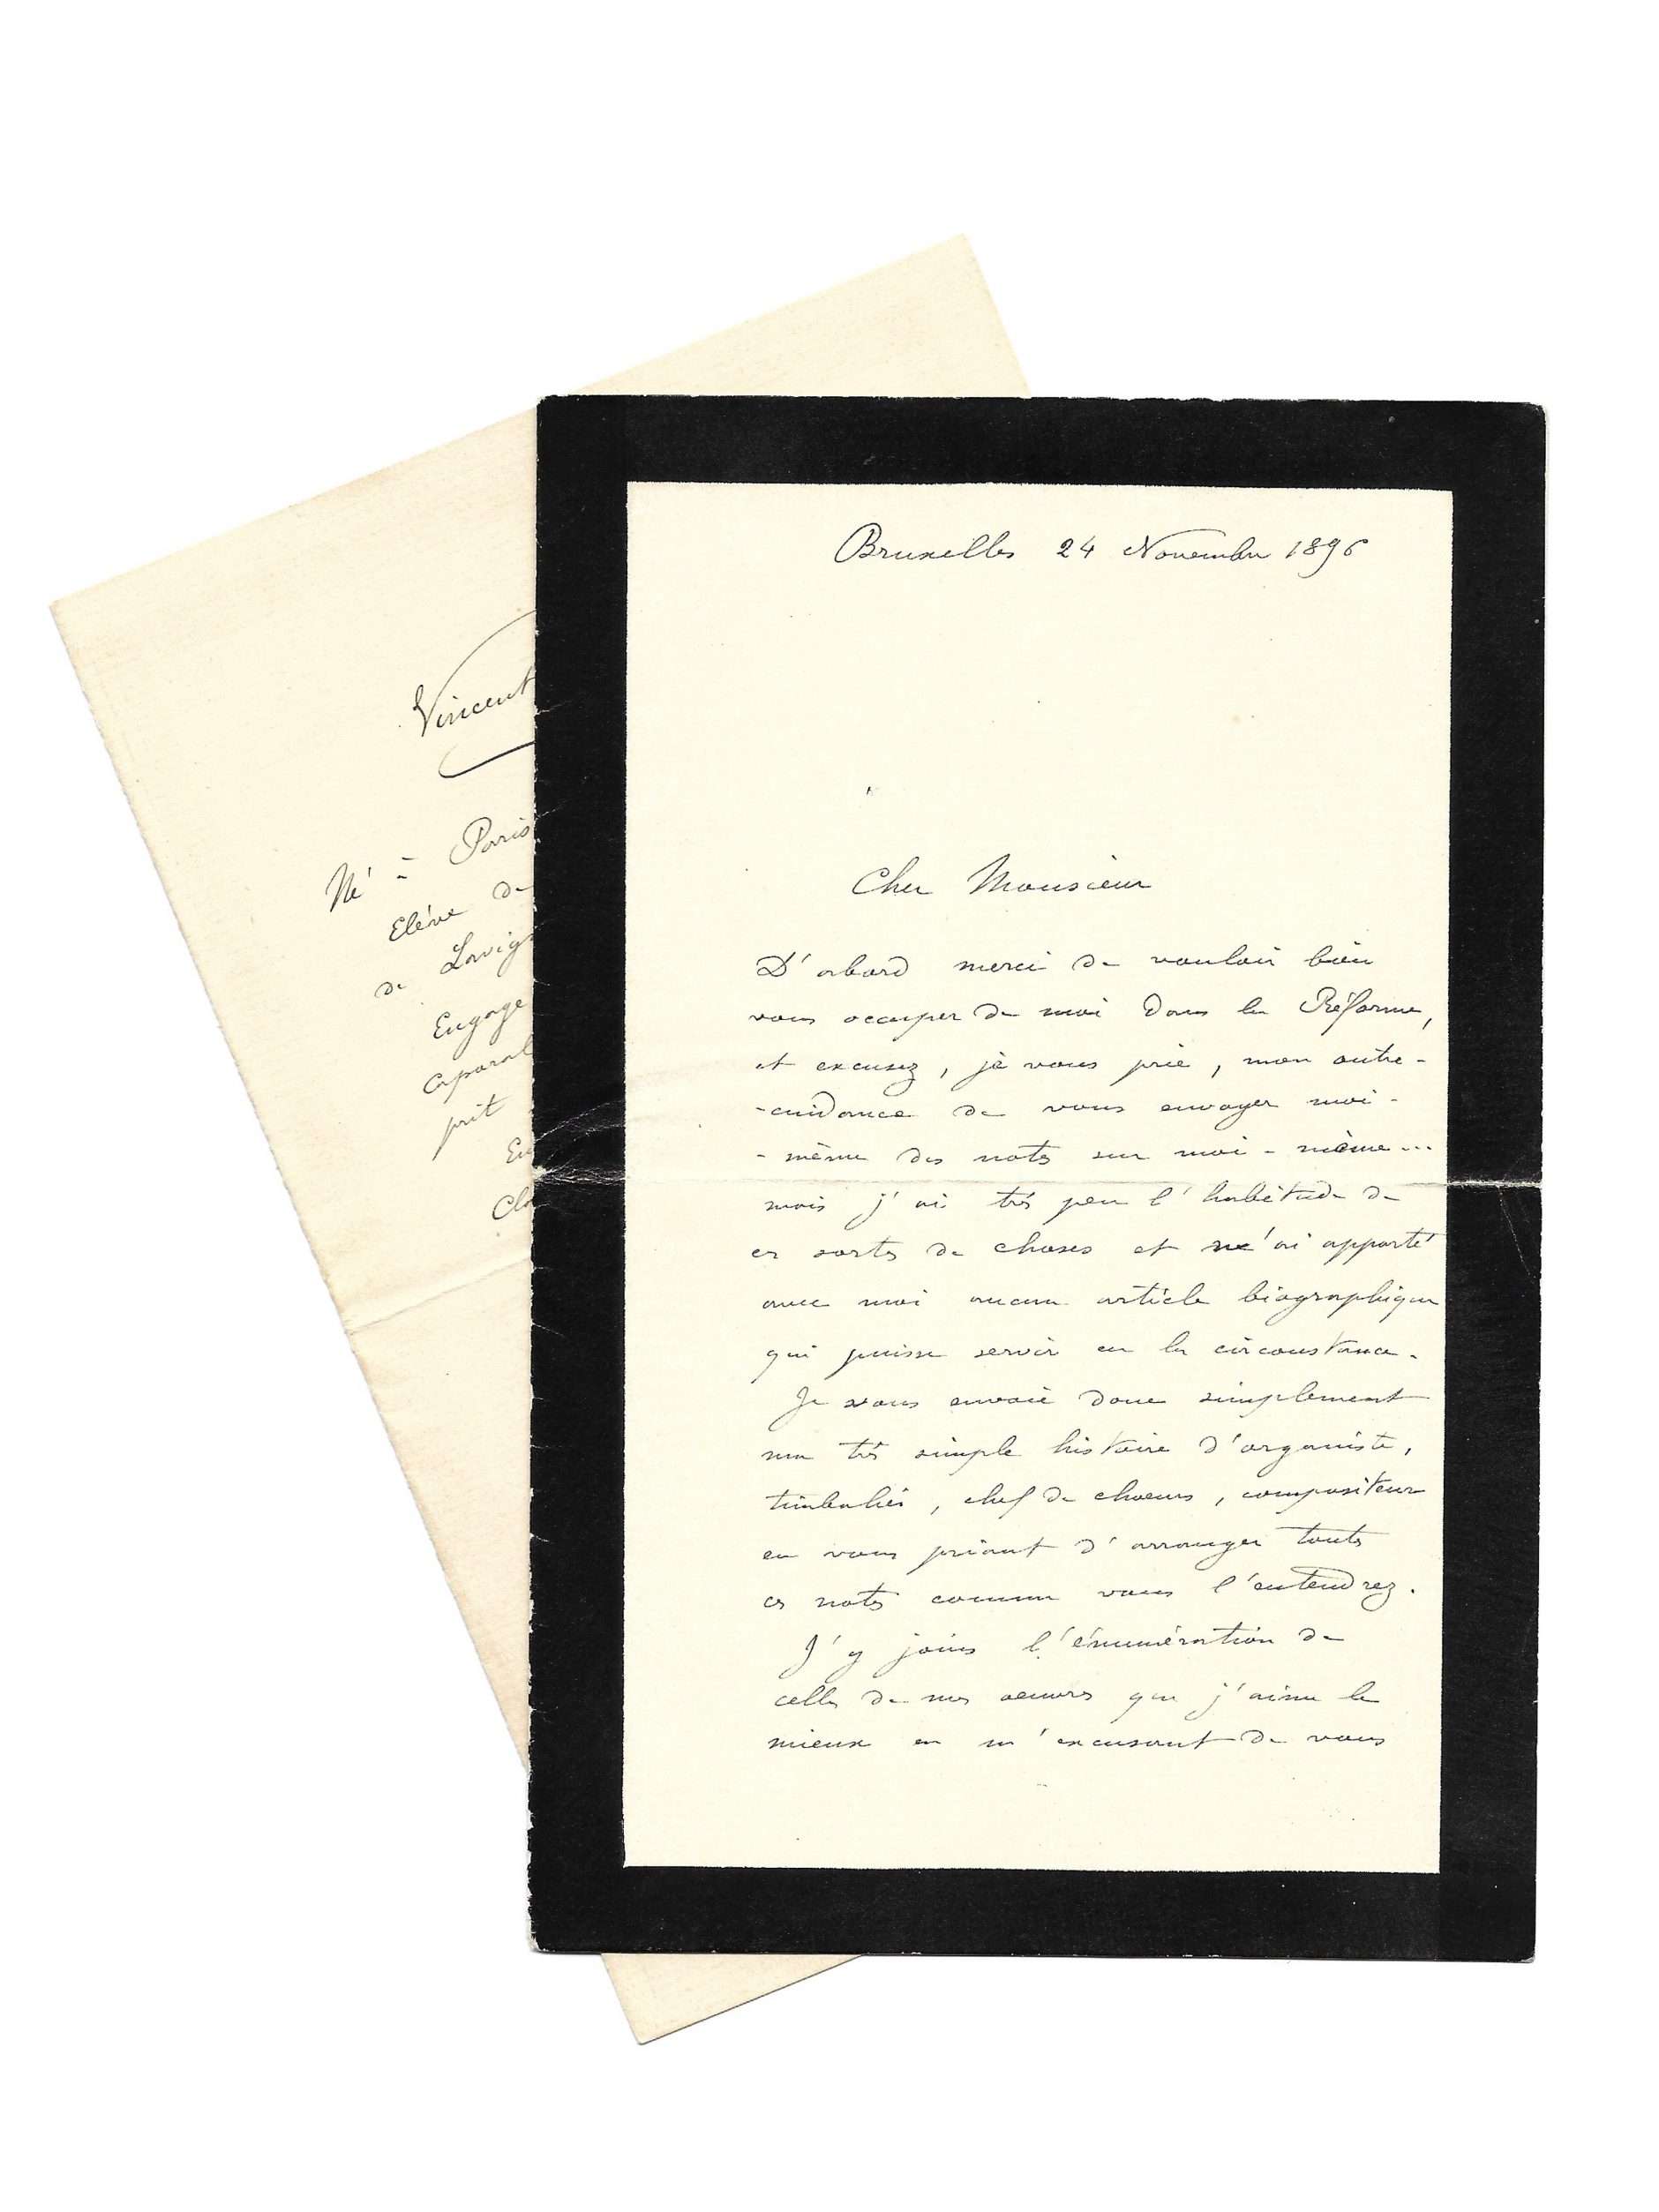 Vincent
Né à Paris
Elève de
de Lavign
Engagé
caporal
prit
En
Cla
Bruxelles 24 Novembre 1896
Cher Monsieur
D'abord merci de vouloir bien
vous occuper de moi dans la Réforme,
et excusez, je vous prie, mon outre-
-cuidance de vous envoyer moi-
-même des notes sur moi-même...
mais j'ai très peu l'habitude de
ces sortes de choses et n'ai apporté
avec moi aucun article biographique
qui puisse servir en la circonstance.
Je vous envoie donc simplement
ma très simple histoire d'organiste,
timbalier, chef de chœurs, compositeur
en vous priant d'arranger toutes
ces notes comme vous l'entendrez.
J'y joins l'énumération de
celles de mes œuvres que j'aime le
mieux en m'excusant de vous